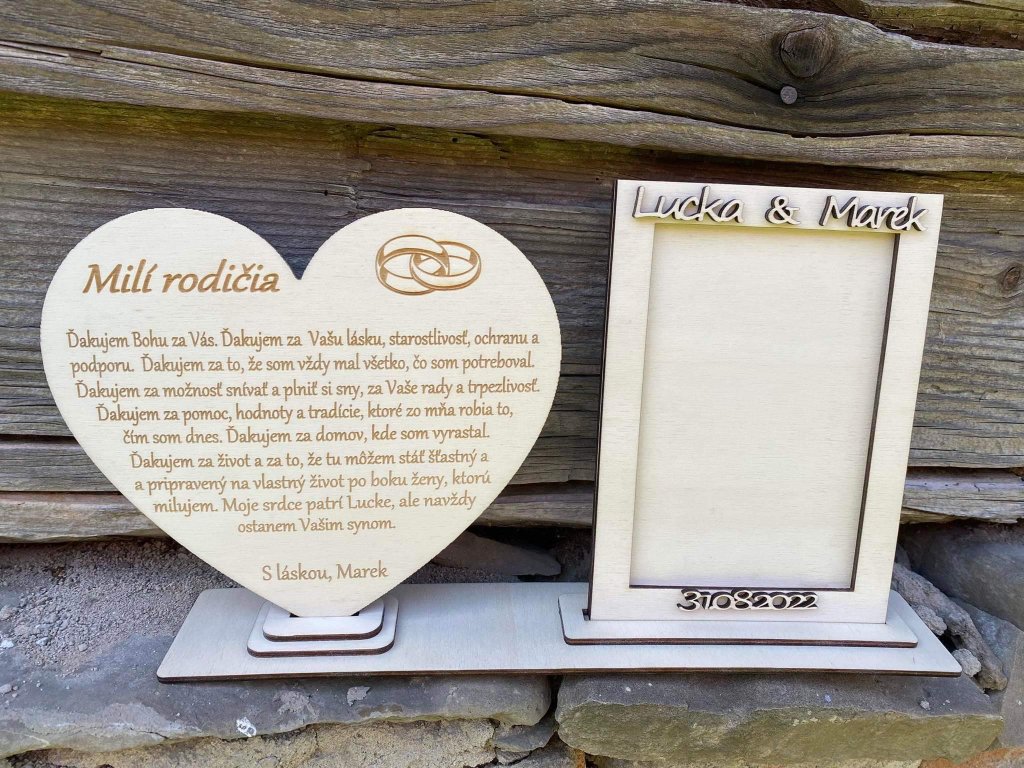 Milí rodičia
Ďakujem Bohu za Vás. Ďakujem za Vašu lásku, starostlivosť, ochranu a
podporu. Ďakujem za to, že som vždy mal všetko, čo som potreboval.
Ďakujem za možnosť snívať a plniť si sny, za Vaše rady a trpezlivosť.
Ďakujem za pomoc, hodnoty a tradície, ktoré zo mňa robia to,
čím som dnes. Ďakujem za domov, kde som vyrastal.
Ďakujem za život a za to, že tu môžem stáť šťastný a
a pripravený na vlastný život po boku ženy, ktorú
milujem. Moje srdce patrí Lucke, ale navždy
ostanem Vašim synom.
S láskou, Marek
Lucka & Marek
31082022